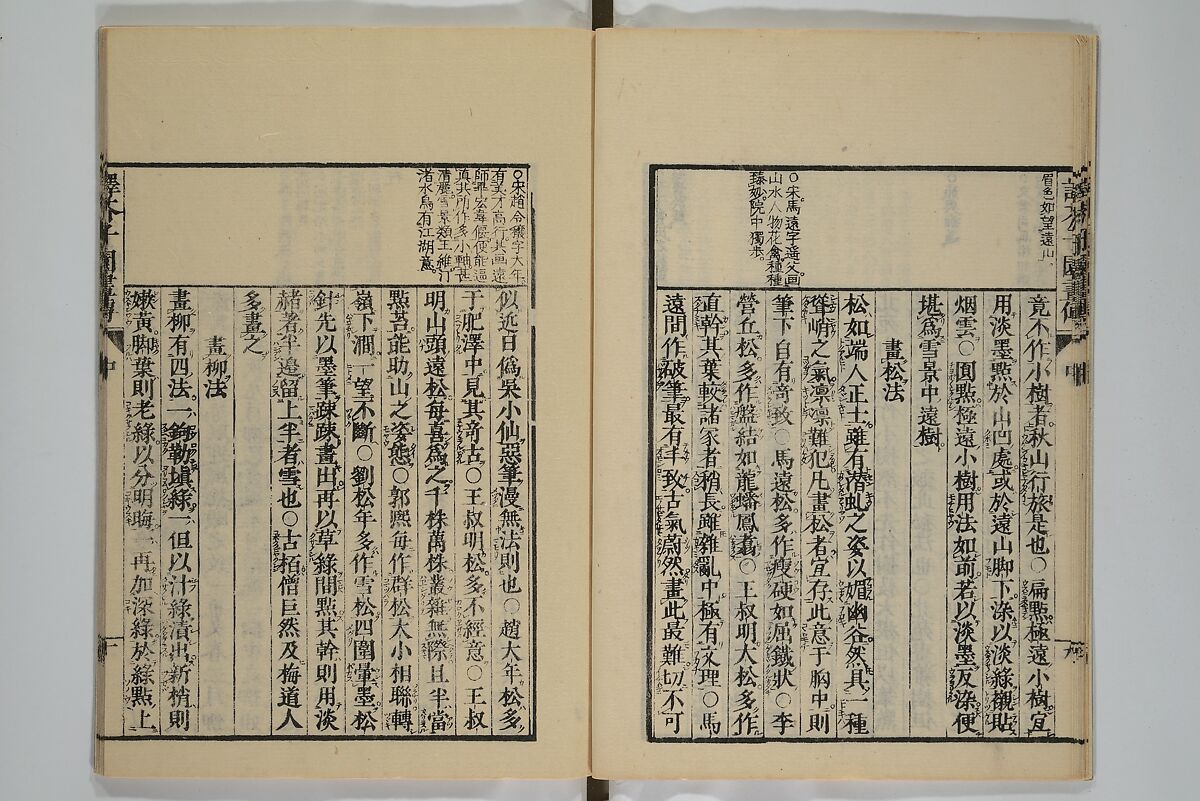 眉色如望遠山
〇宋馬遠字遥父画
山水人物花禽種種
臻妙院中獨步
竟不作小樹者秋山行旅是也〇扁點極遠小樹宜
用淡墨點於山凹處或於遠山脚下染以淡綠襯貼
烟雲〇圓點極遠小樹用法如前若以淡墨反染便
堪爲雪景中遠樹
畫松法
松如端人正士雖有潛虬之姿以媚幽谷然具一種
聳峭之氣凛凛難犯凡畫松者宜存此意于胸中則
筆下自有竒致〇馬遠松多作瘦硬如屈鐵狀〇李
營丘松多作盤結如龍蟠鳳翥〇王叔明大松多作
直幹其葉較諸家者稍長雖雜亂中極有文理〇馬
遠間作破筆最有丰致古氣蔚然畫此最難切不可
〇宋趙令穰字大年
有美才高行其画遠
師畢宏韋偃便能逼
真其所作多小軸甚
清麗雪景類王維汀
渚水鳥有江湖意
似近日僞吳小仙惡筆漫無法則也〇趙大年松多
于肥澤中見其竒古〇王叔明松多不經意〇王叔
明山頭遠松每喜爲之千株萬株叢雜無際且半當
點苔能助山之姿態〇郭熙每作群松大小相聯轉
嶺下澗一望不斷〇劉松年多作雪松四圍暈墨松
針先以墨筆疎疎畫出再以草綠間點其幹則用淡
赭著半邉留上半者雪也〇古栢僧巨然及梅道人
多畫之
畫柳法
畫柳有四法一鉤勒塡綠一但以汁綠漬出新梢則
嫩黃脚葉則老綠以分明晦一再加深綠於綠點上